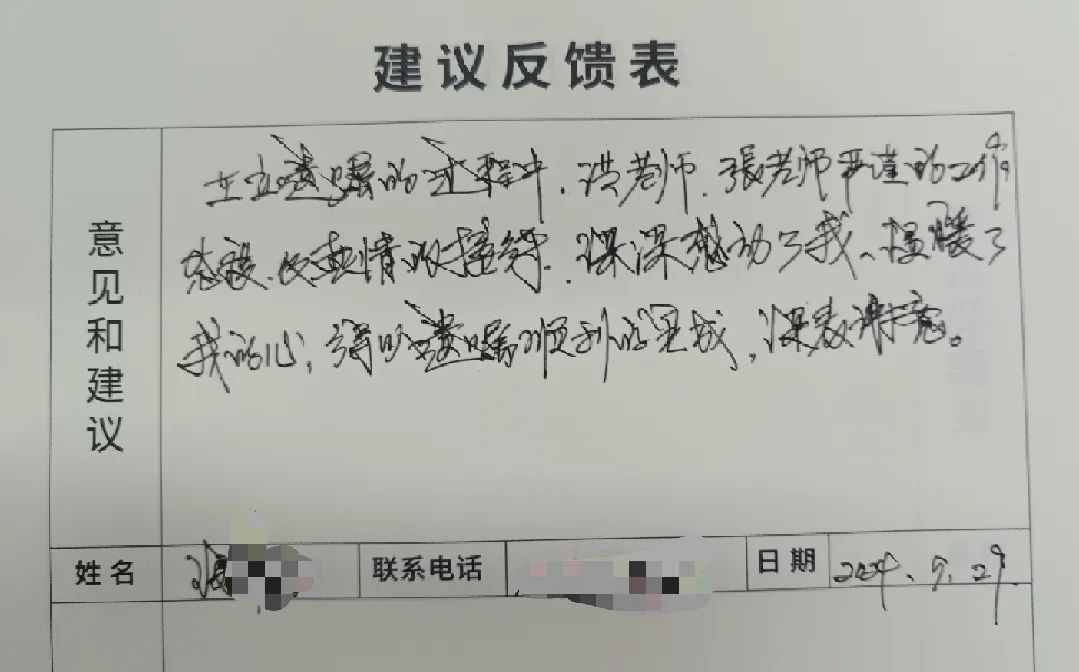 建议反馈表
意见和建议
在立遗嘱的过程中，洪老师、張老师严谨的工作
态度、及热情的接待，深深感动了我、温暖了
我的心，得以遗嘱顺利的完成，深表谢意。
姓名
联系电话
日期 2024.9.29